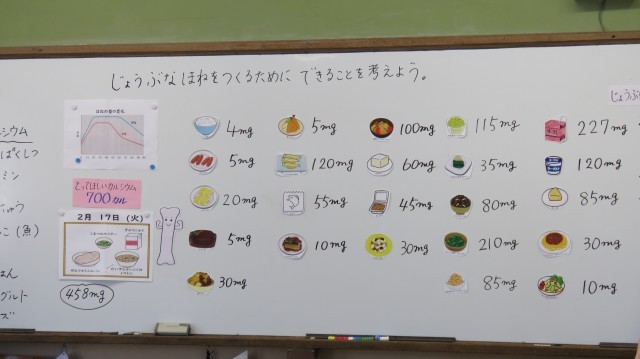 じょうぶなほねをつくるために できることを考えよう。
じょうぶ
シウム
ぱくしつ
ミン
ゅう
こ（魚）
はん
グルト
ズ
とってほしいカルシウム
2月 17日（火）
458mg
4mg
5mg
20mg
5mg
30mg
5mg
120mg
55mg
10mg
100mg
60mg
45mg
30mg
115mg
35mg
80mg
210mg
85mg
227mg
120mg
85mg
30mg
10mg